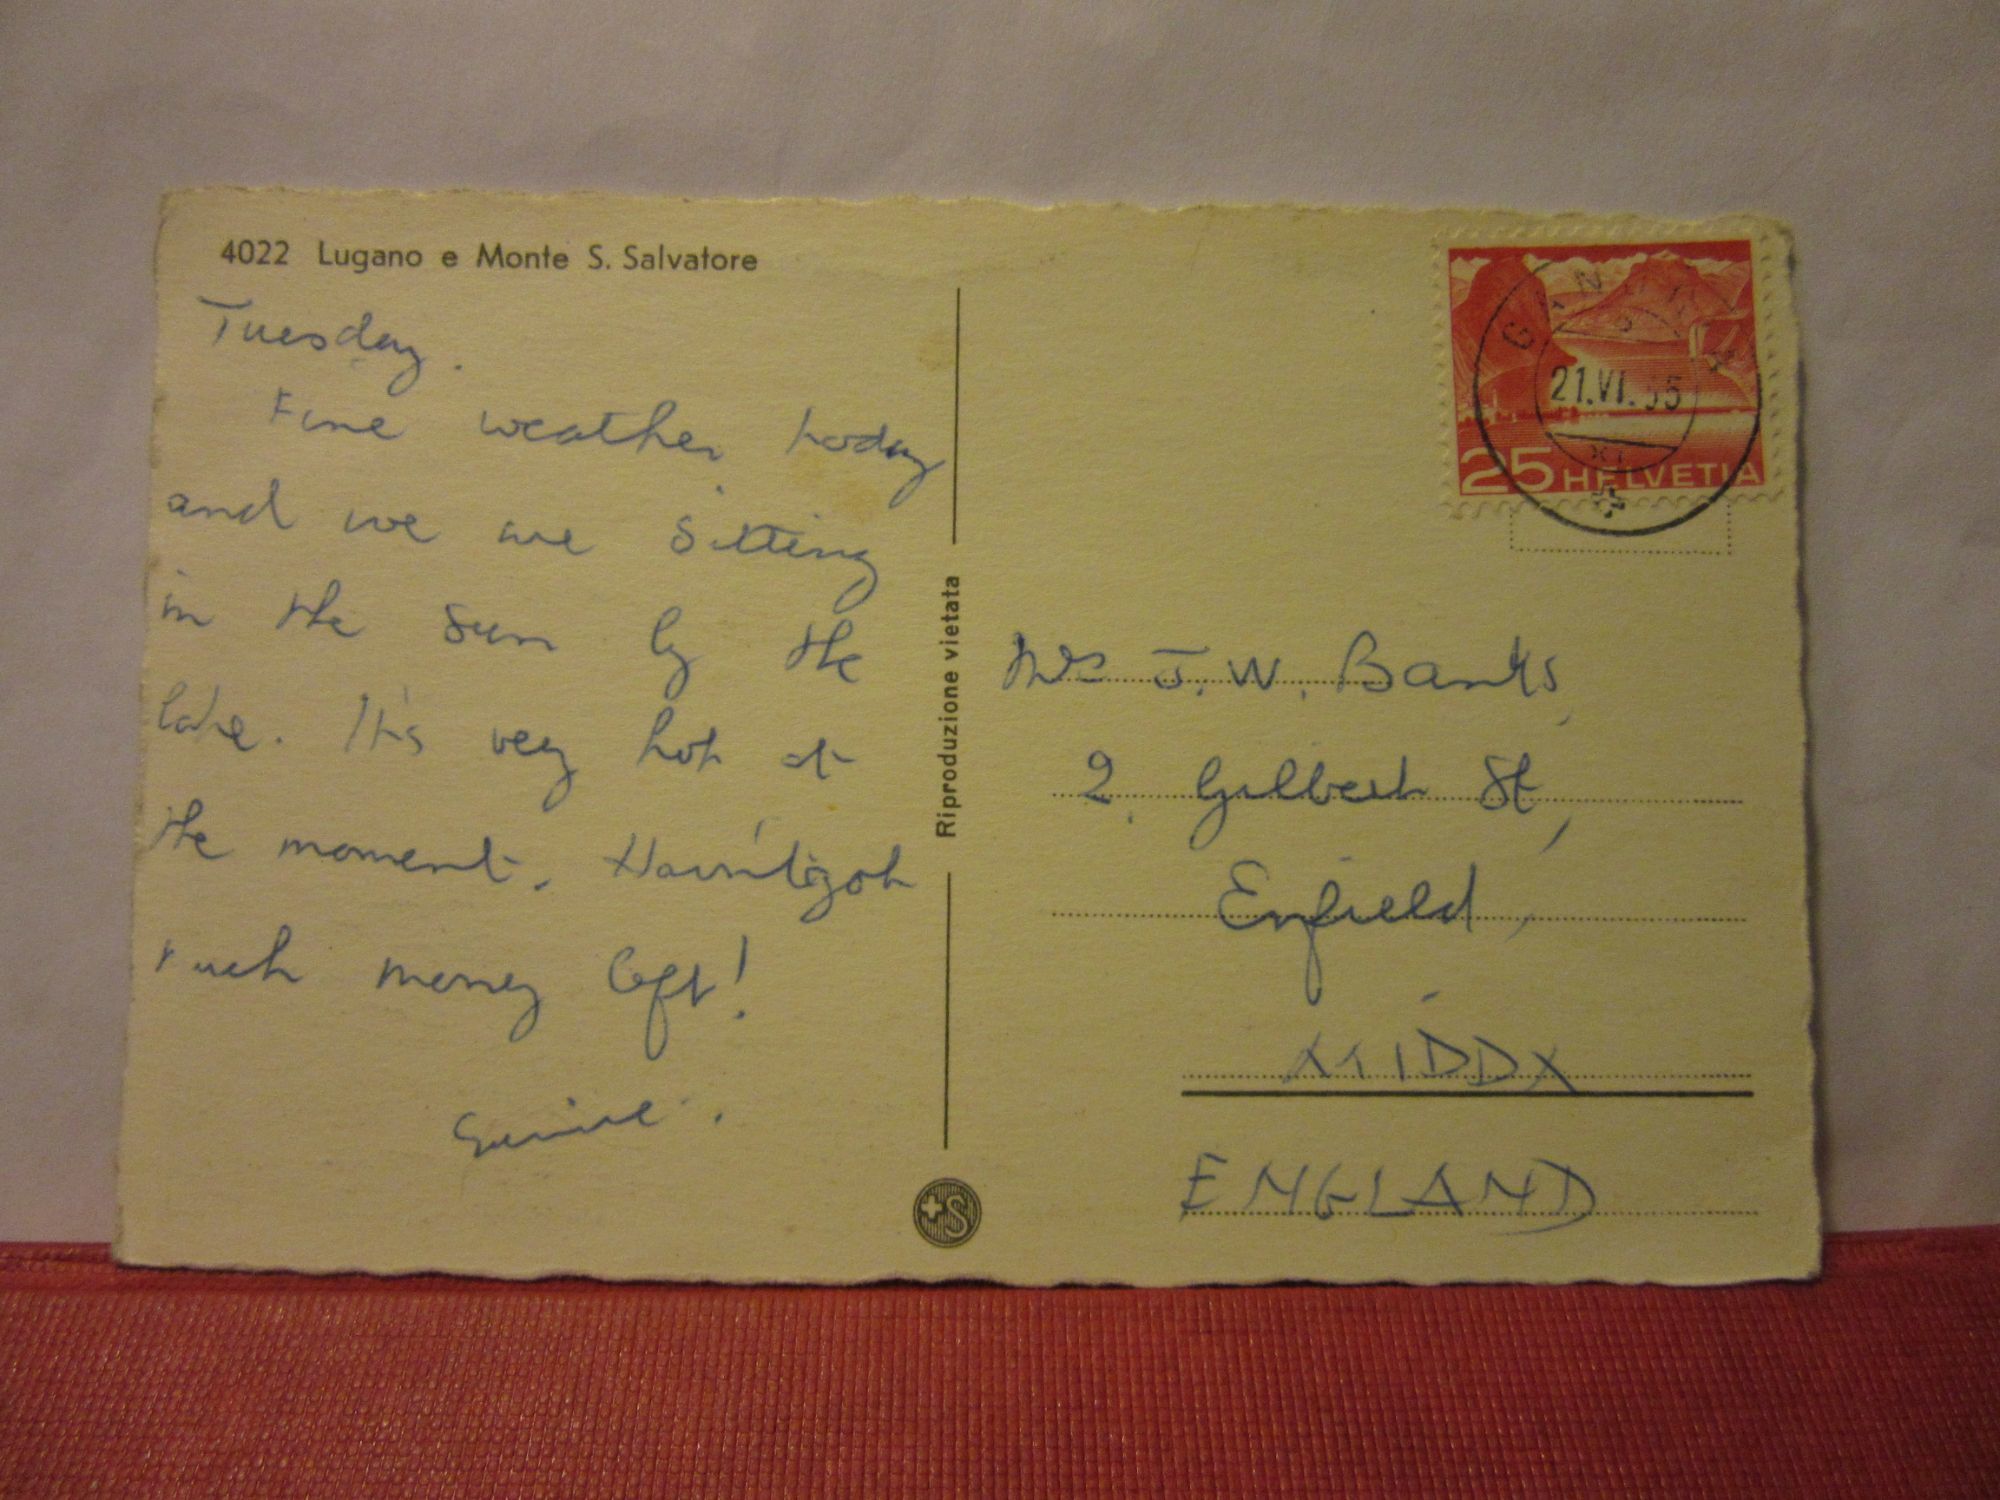 4022 Lugano e Monte S. Salvatore
Tuesday.
Fine weather today
and we are sitting
in the sun by the
lake. It's very hot at
the moment. Haven't got
much money left!
Riproduzione vietata
25 HELVETIA
GANDRIA
21.VI.55
Mrs J. W. Banks,
2, Gilbert St,
Enfield,
MIDDX
ENGLAND
S